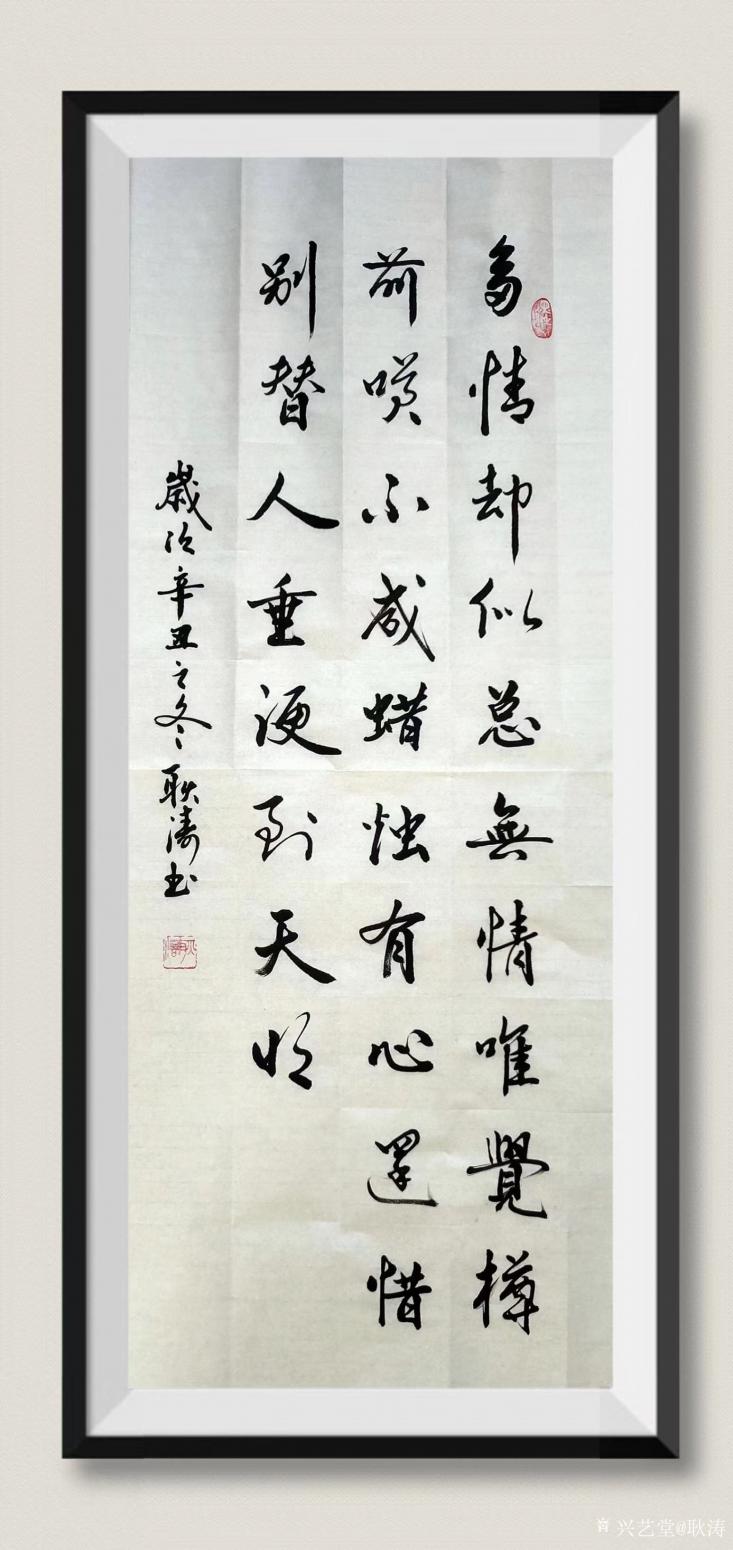 多情却似总無情唯覺樽
前咲不成蜡烛有心還惜
别替人垂淚到天明
歲次辛丑之冬耿濤书
兴艺堂@耿涛